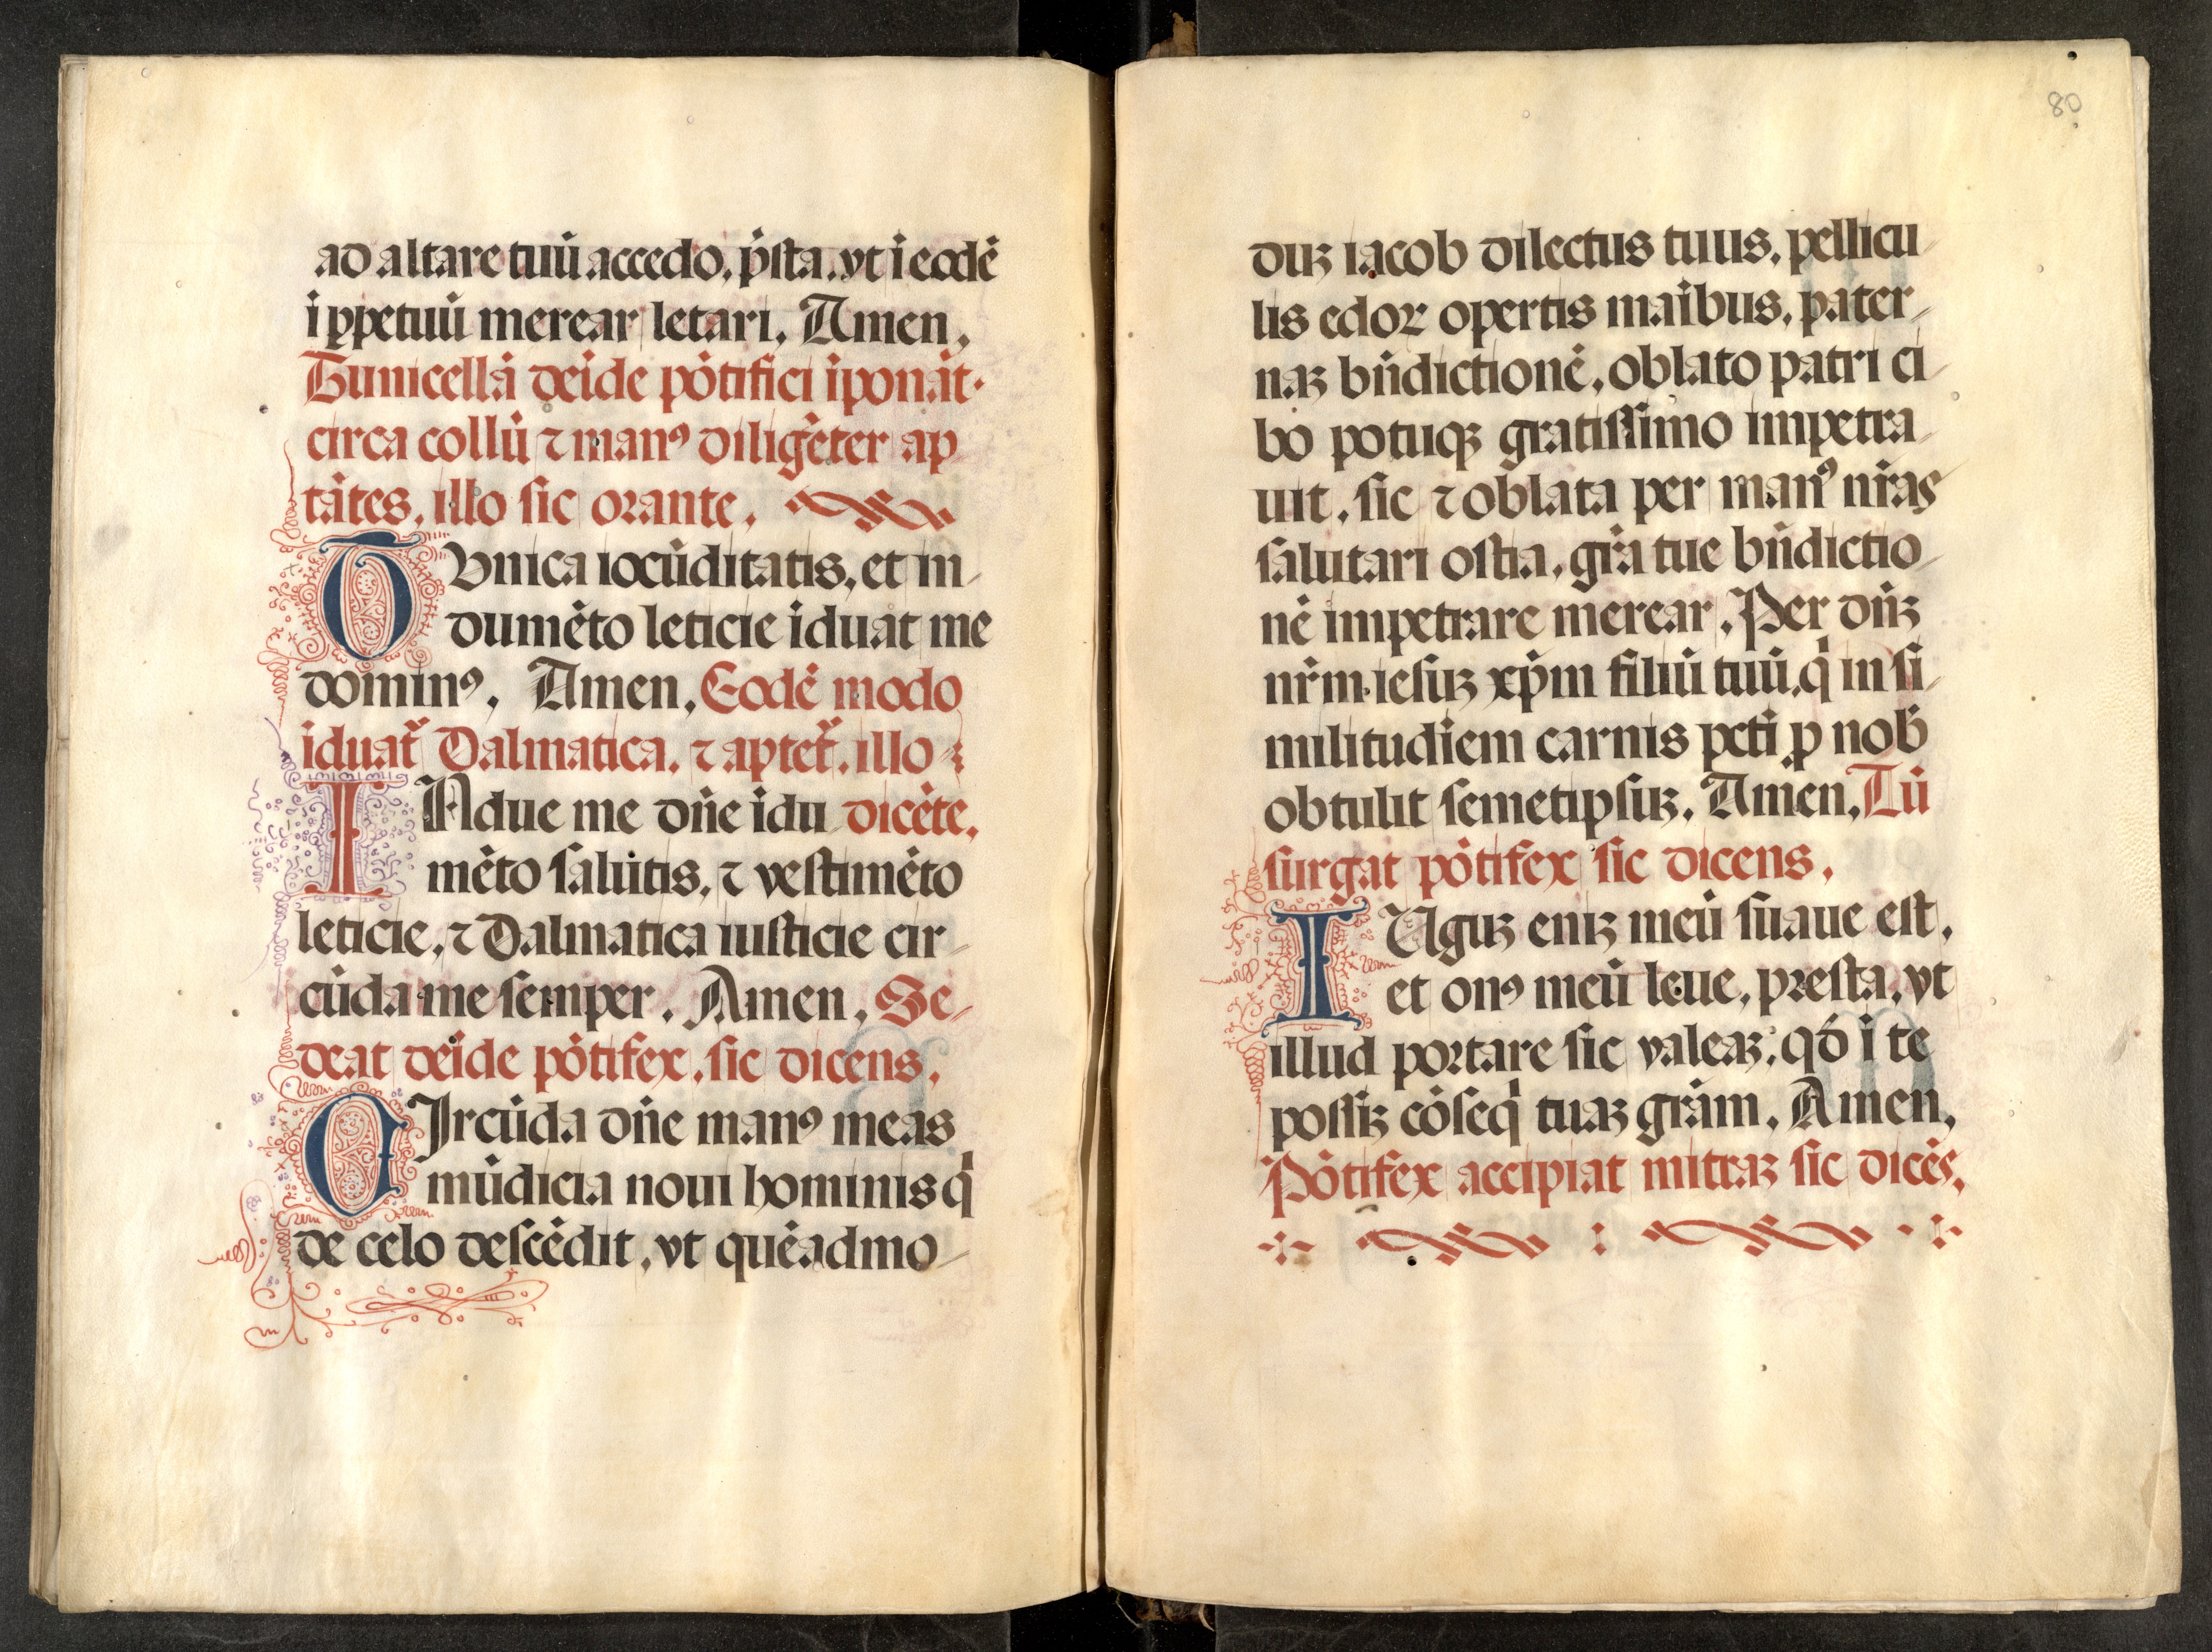 ad altare tuū accedo, p̄sta, vt ī eodē
ī ꝑpetuū merear letari, Amen,
Tunicellā deīde pōtifici īponāt
circa collū ⁊ manꝰ diligēter ap
tātes, illo sic orante,
TVnica iocūditatis, et in
dumēto leticie īduat me
dominꝰ, Amen, Eodē modo
īduat᷑ Dalmatica, ⁊ aptet᷑, illo
INdue me dn̄e īdu dicēte,
mēto salutis, ⁊ vestimēto
leticie, ⁊ Dalmatica iusticie cir
cūda me semper, Amen, Se
deat deīde pōtifex, sic dicens,
CIrcūda dn̄e manꝰ meas
mūdicia noui hominis q̄
de celo descēdit, vt quēadmo
80
duꝫ iacob dilectus tuus, pellicu
lis edoꝝ opertis maībus, pater
naꝫ bn̄dictionē, oblato patri ci
bo potuqꝫ gratissimo impetra
uit, sic ⁊ oblata per manꝰ nr̄as
salutari ostia, gr̄a tue bn̄dictio
nē impetrare merear, Per dn̄ꝫ
nr̄m iesuꝫ xp̄m filiū tuū, q̄ in si
militudīem carnis pcti ꝓ nob̄
obtulit semetipsuꝫ, Amen, Tū
surgat pōtifex sic dicens,
IUguꝫ eniꝫ meū suaue est,
et onꝰ meū leue, presta, vt
illud portare sic valeaꝫ, qd̄ ī te
possiꝫ cōseq̄ tuaꝫ grām, Amen,
Pōtifex accipiat mitraꝫ sic dicēs,